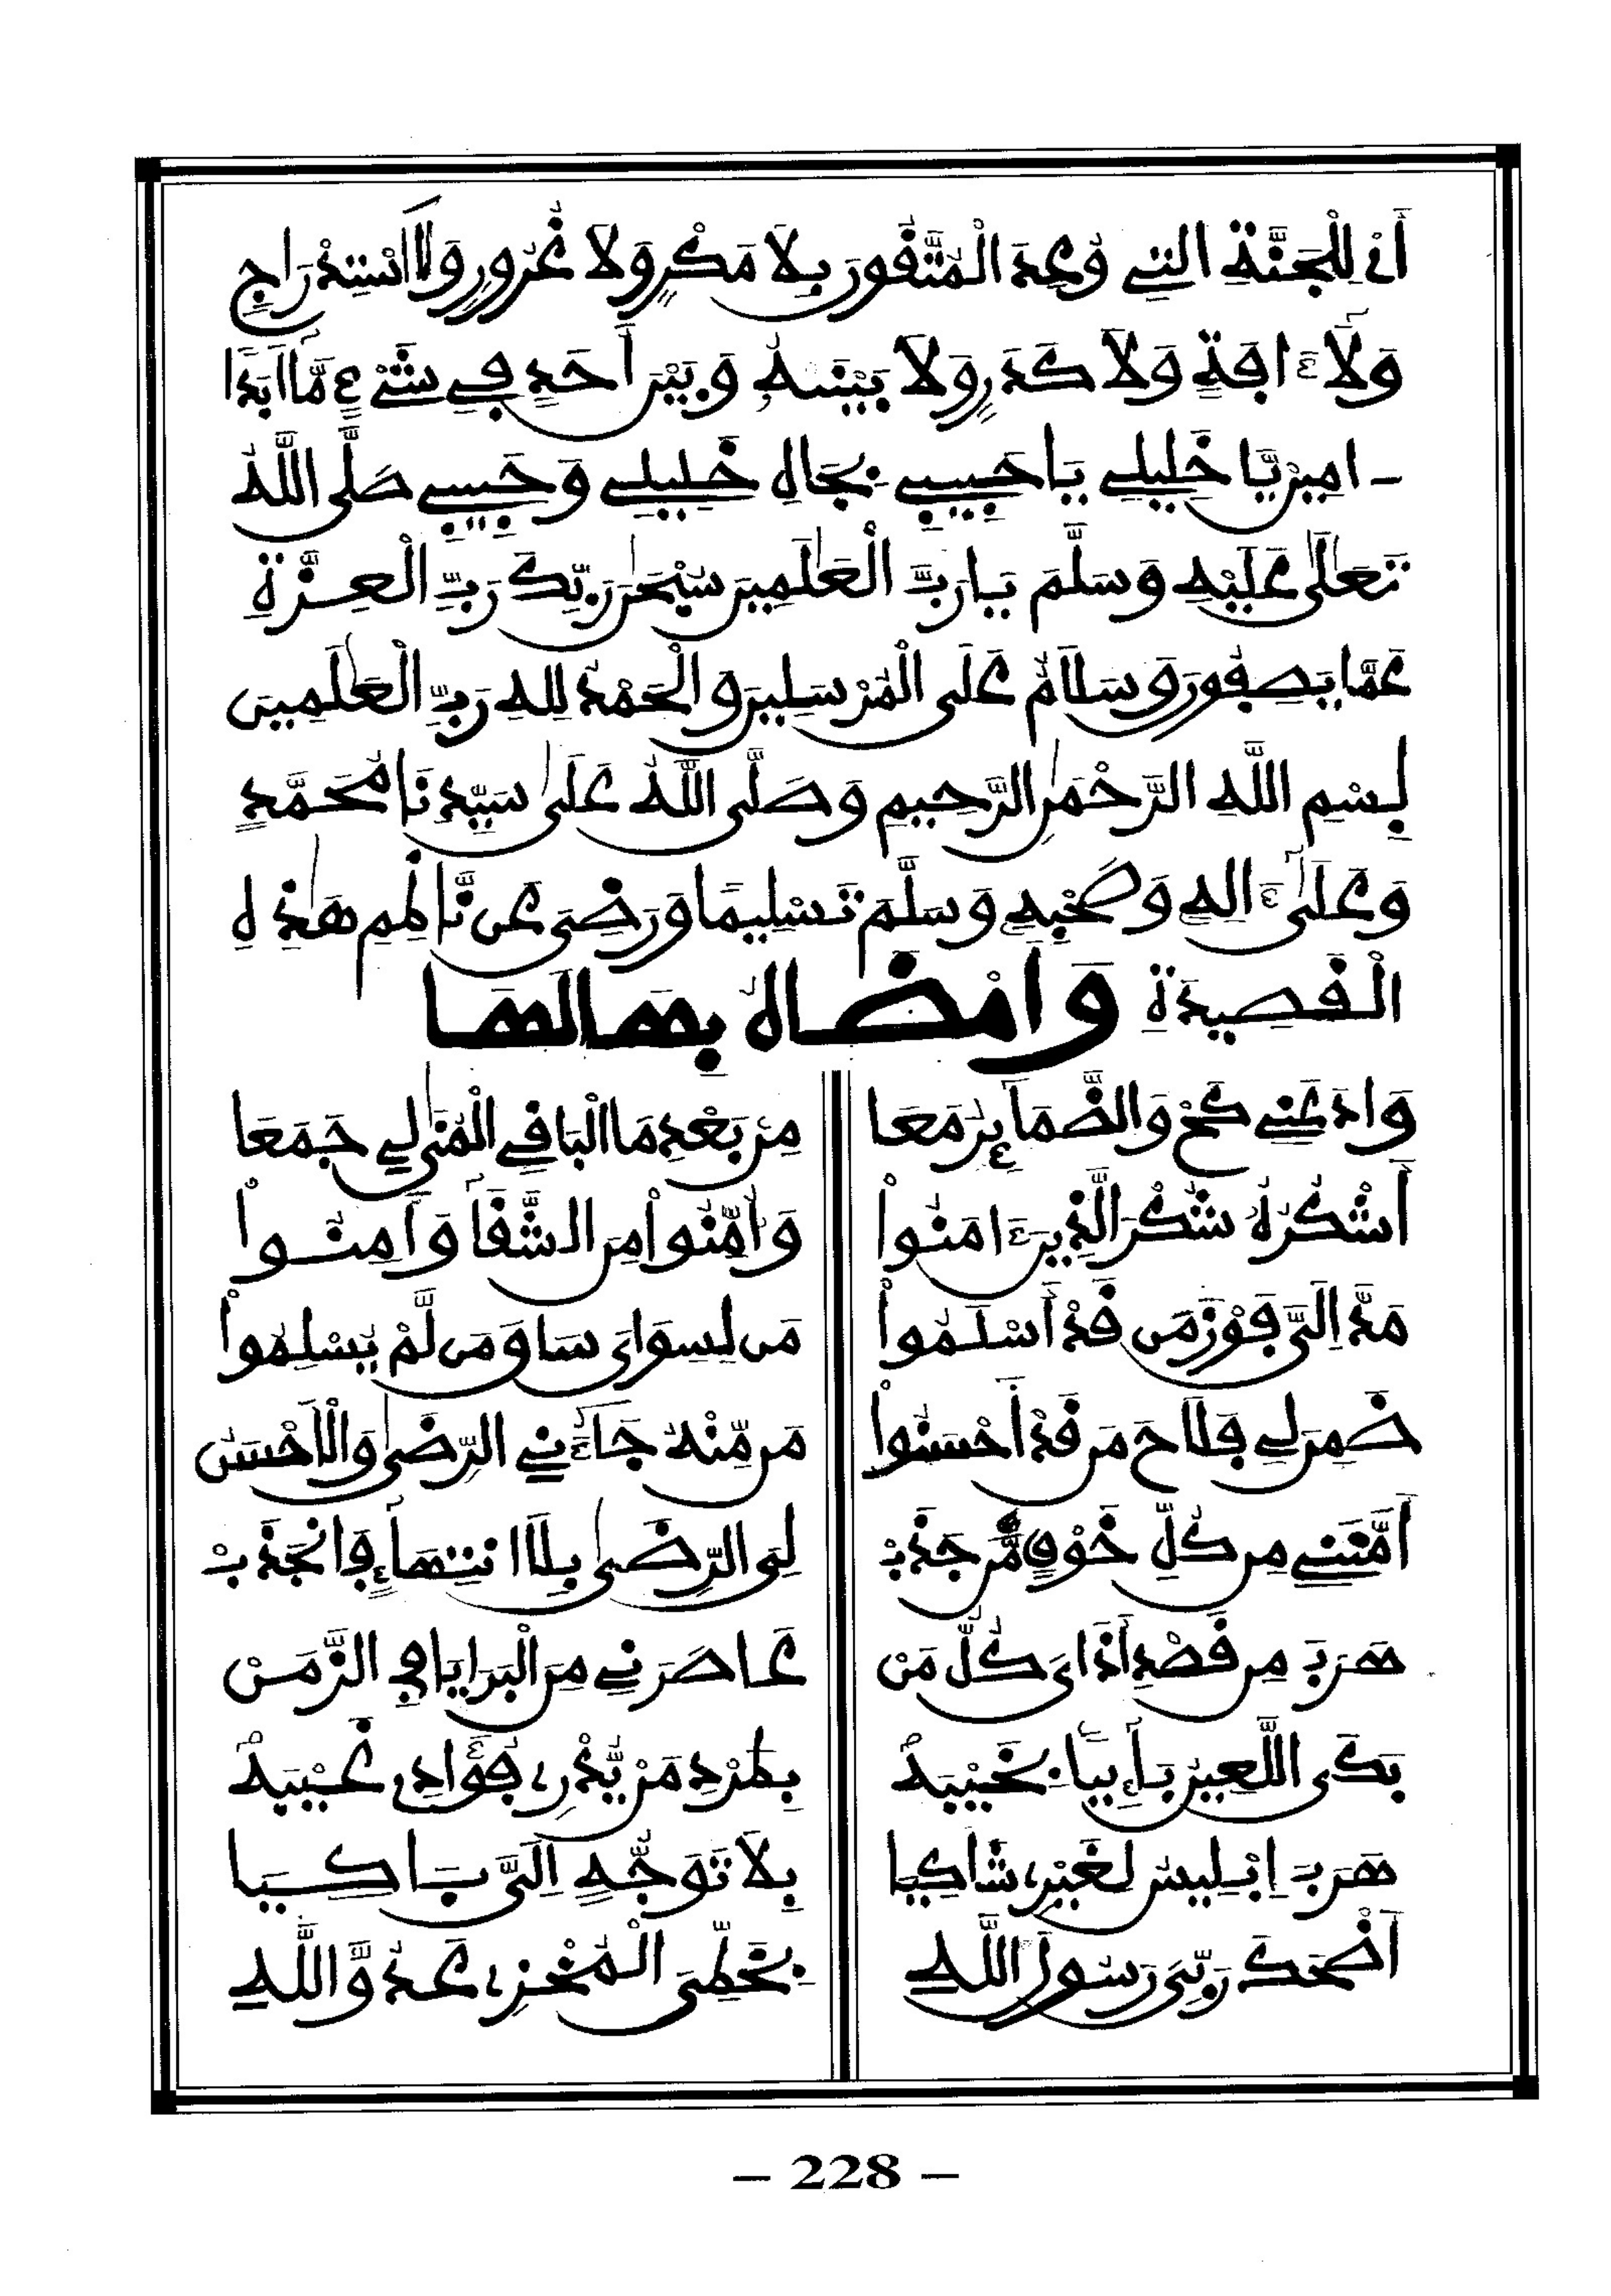 أَنْ لِلْجَنَّةِ التِي وُعِدَ الْمُتَّقُونَ بِلَا مَكْرٍ وَلَا غُرُورٍ وَلَا اسْتِدْرَاجٍ
وَلَا ءَافَةٍ وَلَا كَدَرٍ وَلَا بَيْنَهُ وَبَيْنَ أَحَدٍ فِي شَيْءٍ مَّا أَبَدًا
ـامِين يَّا خَلِيلِي يَا حَبِيبِي بِجَاهِ خَلِيلِي وَحَبِيبِي صَلَّى اللَّهُ
تَعَلَى عَلَيْهِ وَسَلَّمَ يَا رَبَّ الْعَلَمِينَ سُبْحَنَ رَبِّكَ رَبِّ الْعِزَّةِ
عَمَّا يَصِفُونَ وَسَلَامٌ عَلَى الْمُرْسَلِينَ وَالْحَمْدُ لِلهِ رَبِّ الْعَلَمِينَ
بِسْمِ اللَّهِ الرَّحْمَنِ الرَّحِيمِ وَصَلَّى اللَّهُ عَلَى سَيِّدِنَا مُحَمَّدٍ
وَعَلَى ءَالِهِ وَصَحْبِهِ وَسَلَّمَ تَسْلِيمًا وَرَضِيَ عَن نَّاظِمِ هَذِهِ
الْقَصِيدَةِ وَامْضَاهُ بِهَا لَهَا
وَادَ عَنِي كَحْ وَالضَّمَائِرُ مَعَا مِن بَعْدِ مَا الْبَاقِي الْمُنَى لِي جَمَعَا
أَشْكُرُهُ شُكْرَ الَّذِينَ ءَامَنُوا وَأُمِّنُوا مِنَ الشَّقَا وَآمِنُوا
مَدَّ إِلَيَّ فَوْزَ مَن قَدْ أَسْلَمُوا مَن لِسِوَايَ سَا وَمَن لَّمْ يُسْلِمُوا
ضَمِنَ لِي فَلَاحَ مَن قَدْ أَحْسَنُوا مَن مِّنْهُ جَاءَنِي الرِّضَى وَالْأَحْسَنُ
أَمَّنَنِي مِن كُلِّ خَوْفٍ مَّن جَذَبْ لِيَ الرِّضَى بِلَا انتِهَاءٍ فَانجَذَبْ
هَرَبَ مِن قَصْدِ أَذَايَ كُلُّ مَنْ عَاصَرَنِي مِنَ الْبَرَايَا فِي الزَّمَنْ
بَكَى اللَّعِينُ بَآئِبًا بِخَيْبَهْ بِطَرْدِ مَن يَّدْرِي فُؤَادِي غَيْبَهْ
هَرَبَ إِبْلِيسُ لِغَيْرِي شَاكِيَا بِلَا تَوَجُّهٍ إِلَيَّ بَاكِيَا
أَضْحَكَ رَبِّيَ رَسُولَ اللَّهِ بِخَطِّيَ الْمُخْزِي عَدُوَّ اللَّهِ
– 228 –